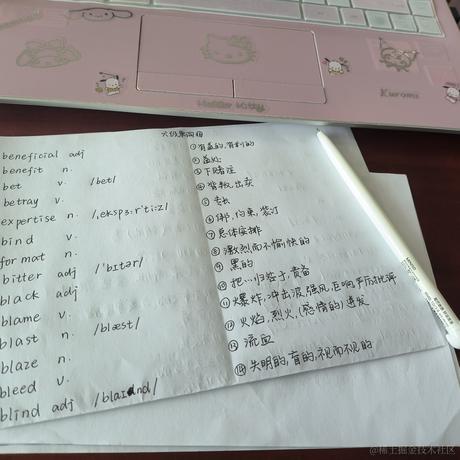 Hello Kitty
Kuromi
六级单词册
beneficial adj
benefit n.
bet v. /bet/
betray v.
expertise n. /ˌekspɜːrˈtiːz/
bind v.
format n.
bitter adj /ˈbɪtər/
black adj
blame v.
blast n. /blæst/
blaze n.
bleed v.
blind adj /blaɪnd/
①有益的,有利的
②益处
③下赌注
④背叛,出卖
⑤专长
⑥绑,约束,装订
⑦总体安排
⑧激烈而不愉快的
⑨黑的
⑩把…归咎于,责备
⑪爆炸,冲击波,强风,巨响,严厉批评
⑫火焰,烈火,(感情的)迸发
⑬流血
⑭失明的,盲的,视而不见的
@稀土掘金技术社区